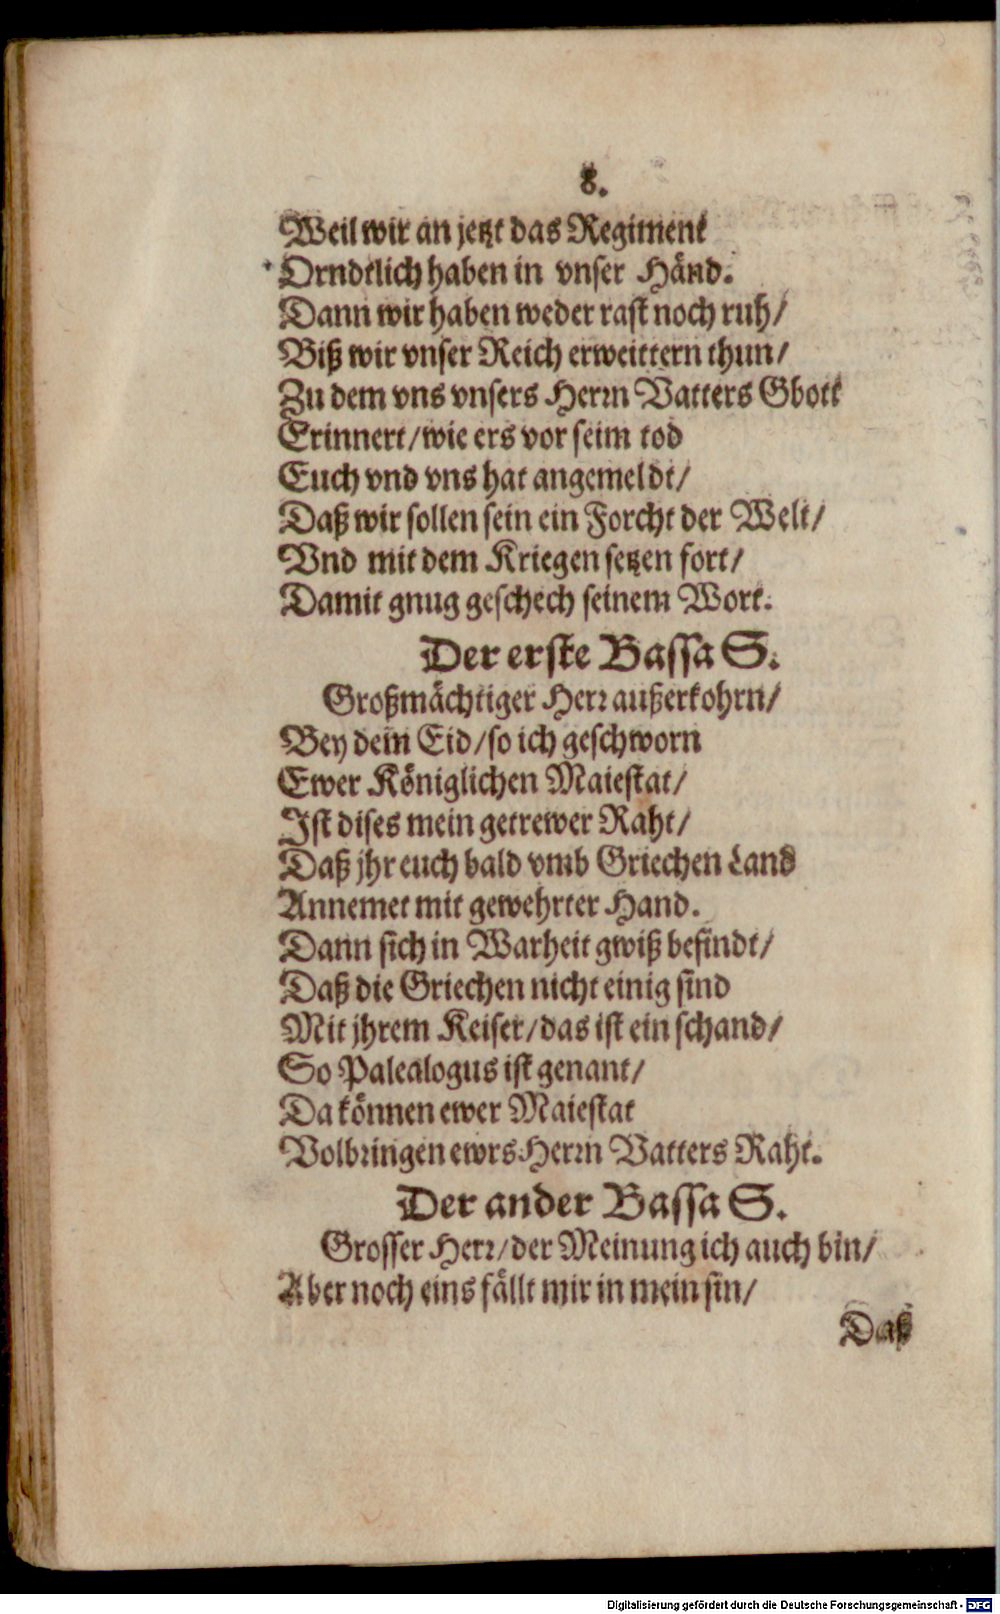 8.
Weil wir an jetzt das Regiment
Orndtlich haben in vnser Händ.
Dann wir haben weder rast noch ruh/
Biß wir vnser Reich erweittern thun/
Zu dem vns vnsers Herrn Vatters Gbott
Erinnert/wie ers vor seim tod
Euch vnd vns hat angemeldt/
Daß wir sollen sein ein Forcht der Welt/
Vnd mit dem Kriegen setzen fort/
Damit gnug geschech seinem Wort.
Der erste Bassa S.
Großmächtiger Herr außerkohrn/
Bey dem Eid/so ich geschworn
Ewer Königlichen Maiestat/
Ist dises mein getrewer Raht/
Daß jhr euch bald vmb Griechen Land
Annemet mit gewehrter Hand.
Dann sich in Warheit gwiß befindt/
Daß die Griechen nicht einig sind
Mit jhrem Keiser/das ist ein schand/
So Palealogus ist genant/
Da können ewer Maiestat
Volbringen ewrs Herrn Vatters Raht.
Der ander Bassa S.
Grosser Herr/der Meinung ich auch bin/
Aber noch eins fällt mir in mein sin/
Daß
Digitalisierung gefördert durch die Deutsche Forschungsgemeinschaft - DFG